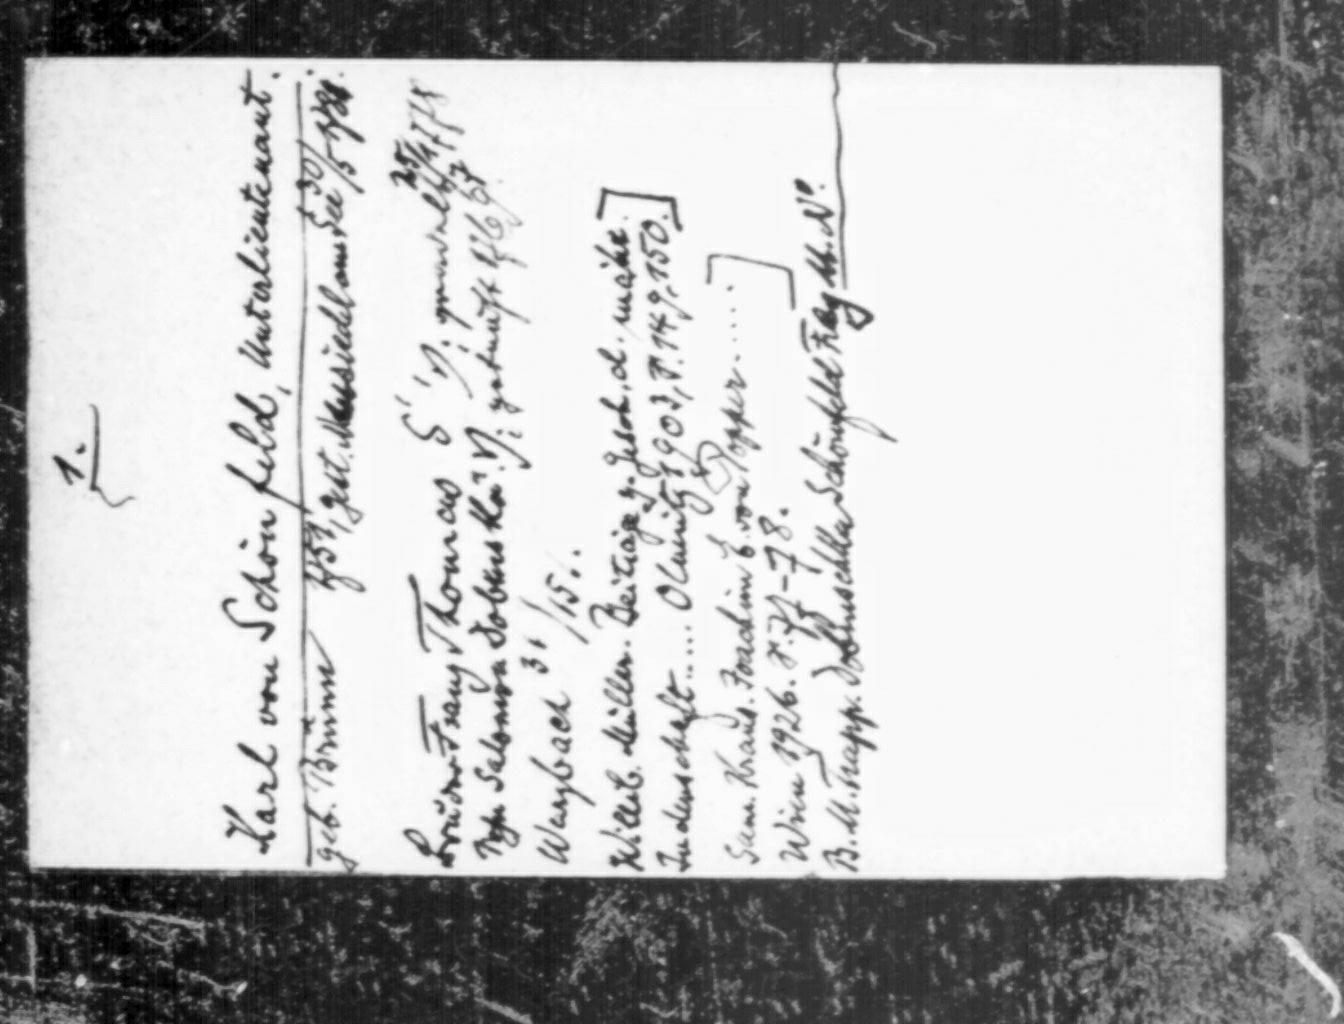 1.
Karl von Schönfeld, Unterlieutenant.
geb. Brünn 1751, gest. 30/5 1781.
Franz Thomas S' N. 25/4 778
Salomon Dobruska N: getauft 1767
Wurzbach 31/151.
Willib. Müller. Beiträge z. Gesch. d. mähr.
Judenschaft..... Olmütz 1903, S. 149, 150.]
Sam. Kraus. Joachim E. von Popper.....
Wien 1926. S. 77-78.]
B. M. Trapp. Dobruschka Schönfeld Frey M. N°.